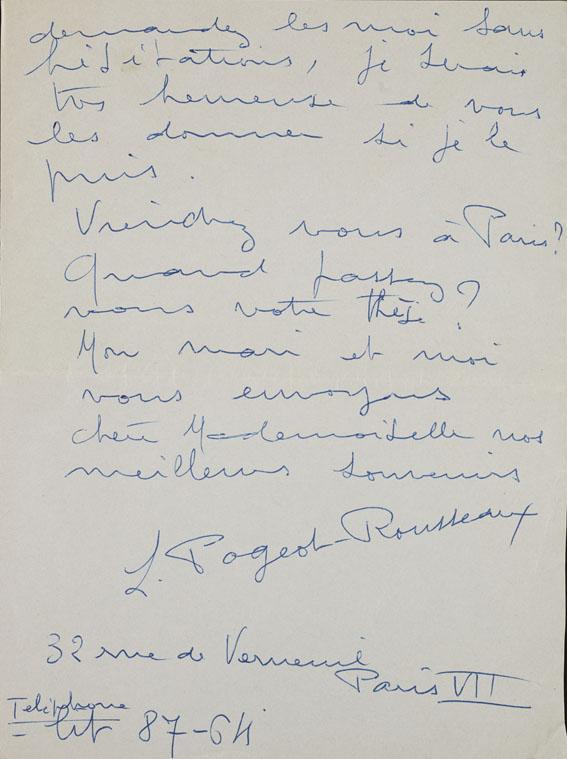 demandez les moi sans
hésitations, je serais
très heureuse de vous
les donner si je le
puis.
Viendrez vous à Paris?
Quand passez
vous votre thèse?
Mon mari et moi
vous envoyons
chère Mademoiselle nos
meilleurs souvenirs
L. Pogeot-Rousseaux
32 rue de Verneuil
Paris VII
Téléphone
= Lit 87-64